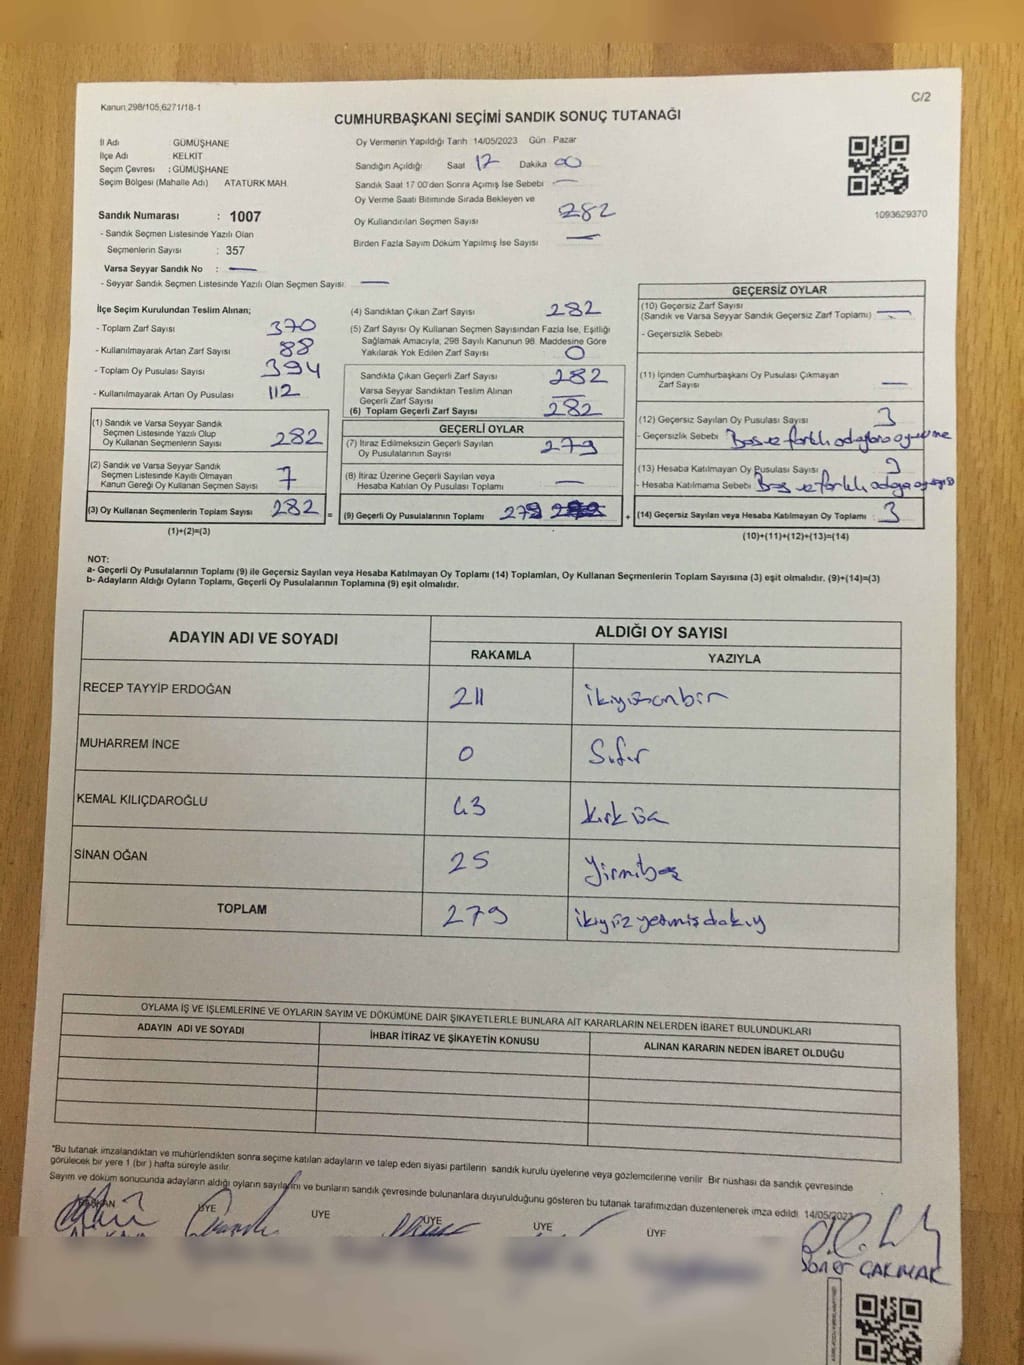 Kanun,298/105,6271/18-1
C/2
CUMHURBAŞKANI SEÇİMİ SANDIK SONUÇ TUTANAĞI
İl Adı GÜMÜŞHANE
İlçe Adı KELKİT
Seçim Çevresi : GÜMÜŞHANE
Seçim Bölgesi (Mahalle Adı) ATATÜRK MAH.
Sandık Numarası : 1007
- Sandık Seçmen Listesinde Yazılı Olan
Seçmenlerin Sayısı : 357
Varsa Seyyar Sandık No : —
- Seyyar Sandık Seçmen Listesinde Yazılı Olan Seçmen Sayısı: —
Oy Vermenin Yapıldığı Tarih 14/05/2023 Gün Pazar
Sandığın Açıldığı Saat 17 Dakika 00
Sandık Saat 17:00'den Sonra Açımış İse Sebebi —
Oy Verme Saati Bitiminde Sırada Bekleyen ve
Oy Kullandırılan Seçmen Sayısı 282
Birden Fazla Sayım Döküm Yapılmış İse Sayısı —
1093629370
İlçe Seçim Kurulundan Teslim Alınan;
- Toplam Zarf Sayısı 370
- Kullanılmayarak Artan Zarf Sayısı 88
- Toplam Oy Pusulası Sayısı 394
- Kullanılmayarak Artan Oy Pusulası 112
(1) Sandık ve Varsa Seyyar Sandık
Seçmen Listesinde Yazılı Olup
Oy Kullanan Seçmenlerin Sayısı 282
(2) Sandık ve Varsa Seyyar Sandık
Seçmen Listesinde Kayıtlı Olmayan
Kanun Gereği Oy Kullanan Seçmen Sayısı 7
(3) Oy Kullanan Seçmenlerin Toplam Sayısı 282 =
(1)+(2)=(3)
(4) Sandıktan Çıkan Zarf Sayısı 282
(5) Zarf Sayısı Oy Kullanan Seçmen Sayısından Fazla İse, Eşitliği
Sağlamak Amacıyla, 298 Sayılı Kanunun 98. Maddesine Göre
Yakılarak Yok Edilen Zarf Sayısı 0
Sandıkta Çıkan Geçerli Zarf Sayısı 282
Varsa Seyyar Sandıktan Teslim Alınan
Geçerli Zarf Sayısı —
(6) Toplam Geçerli Zarf Sayısı 282
GEÇERLİ OYLAR
(7) İtiraz Edilmeksizin Geçerli Sayılan
Oy Pusulalarının Sayısı 279
(8) İtiraz Üzerine Geçerli Sayılan veya
Hesaba Katılan Oy Pusulası Toplamı —
(9) Geçerli Oy Pusulalarının Toplamı 279 +
GEÇERSİZ OYLAR
(10) Geçersiz Zarf Sayısı
(Sandık ve Varsa Seyyar Sandık Geçersiz Zarf Toplamı) —
- Geçersizlik Sebebi
(11) İçinden Cumhurbaşkanı Oy Pusulası Çıkmayan
Zarf Sayısı —
(12) Geçersiz Sayılan Oy Pusulası Sayısı 3
- Geçersizlik Sebebi Boş ve farklı adaylara oy verme
(13) Hesaba Katılmayan Oy Pusulası Sayısı
- Hesaba Katılmama Sebebi Boş ve farklı adaya
(14) Geçersiz Sayılan veya Hesaba Katılmayan Oy Toplamı 3
(10)+(11)+(12)+(13)=(14)
NOT:
a- Geçerli Oy Pusulalarının Toplamı (9) ile Geçersiz Sayılan veya Hesaba Katılmayan Oy Toplamı (14) Toplamları, Oy Kullanan Seçmenlerin Toplam Sayısına (3) eşit olmalıdır. (9)+(14)=(3)
b- Adayların Aldığı Oyların Toplamı, Geçerli Oy Pusulalarının Toplamına (9) eşit olmalıdır.
ADAYIN ADI VE SOYADI ALDIĞI OY SAYISI
RAKAMLA YAZIYLA
RECEP TAYYİP ERDOĞAN 211 ikiyüzonbir
MUHARREM İNCE 0 Sıfır
KEMAL KILIÇDAROĞLU 43 kırk üç
SİNAN OĞAN 25 yirmibeş
TOPLAM 279 ikiyüz yetmiş dokuz
OYLAMA İŞ VE İŞLEMLERİNE VE OYLARIN SAYIM VE DÖKÜMÜNE DAİR ŞİKAYETLERLE BUNLARA AİT KARARLARIN NELERDEN İBARET BULUNDUKLARI
ADAYIN ADI VE SOYADI İHBAR İTİRAZ VE ŞİKAYETİN KONUSU ALINAN KARARIN NEDEN İBARET OLDUĞU
"Bu tutanak imzalandıktan ve mühürlendikten sonra seçime katılan adayların ve talep eden siyasi partilerin sandık kurulu üyelerine veya gözlemcilerine verilir. Bir nüshası da sandık çevresinde
görülecek bir yere 1 (bir ) hafta süreyle asılır.
Sayım ve döküm sonucunda adayların aldığı oyların sayılarını ve bunların sandık çevresinde bulunanlara duyurulduğunu gösteren bu tutanak tarafımızdan düzenlenerek imza edildi. 14/05/2023
ÜYE ÜYE ÜYE ÜYE ÜYE
Soner ÇAKMAK